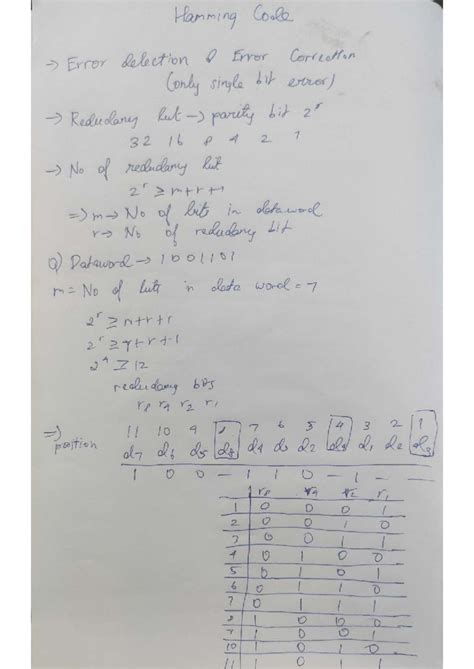 Hamming Code
→ Error detection & Error Correction
(only single bit error)
→ Redudancy but → parity bit 2^r
32 16 8 4 2 1
→ No of redudancy but
2^r ≥ m+r+1
⇒ m → No of bits in dataword
r → No of redudancy bit
Q) Dataword → 1001101
m = No of bits in data word = 7
2^r ≥ m+r+1
2^r ≥ 7+r+1
2^4 ≥ 12
redudancy bits
r8 r4 r2 r1
⇒ position 11 10 9 8 7 6 5 4 3 2 1
d7 d6 d5 d4 d2 d1
1 0 0 – 1 1 0 – 1 – –
r8 r4 r2 r1
1 0 0 0 1
2 0 0 1 0
3 0 0 1 1
4 0 1 0 0
5 0 1 0 1
6 0 1 1 0
7 0 1 1 1
8 1 0 0 0
9 1 0 0 1
10 1 0 1 0
11 1 0 1